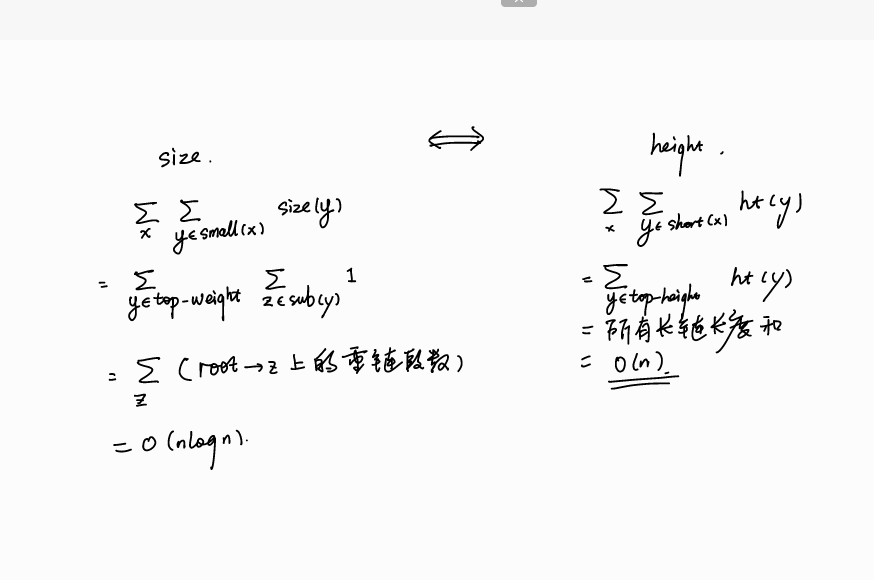 size.
⟺
height.
∑_x ∑_{y∈small(x)} size(y)
= ∑_{y∈top-weight} ∑_{z∈sub(y)} 1
= ∑_z (root→z上的重链段数)
= O(nlogn).
∑_x ∑_{y∈short(x)} ht(y)
= ∑_{y∈top-height} ht(y)
= 所有长链长度和
= O(n).